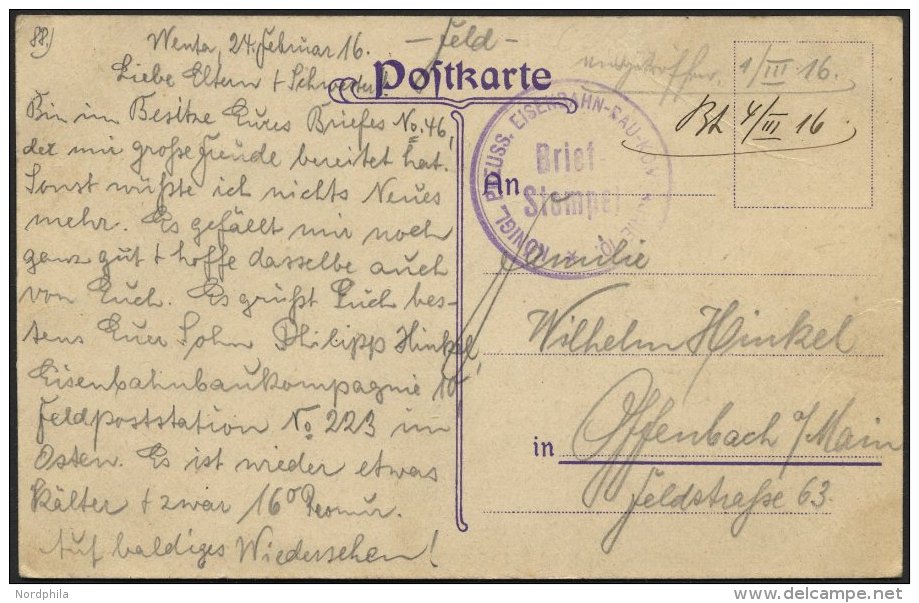 88.)
Wenta, 24. Februar 16.
Liebe Eltern + Schwester!
Bin im Besitze Eures Briefes No. 46,
der mir große Freude bereitet hat.
Sonst wüßte ich nichts Neues
mehr. Es gefällt mir noch
ganz gut + hoffe dasselbe auch
von Euch. Es grüßt Euch bes-
tens Euer Sohn Philipp Hinkel
Eisenbahnbaukompagnie 10!
Feldpoststation No 223 im
Osten. Es ist wieder etwas
kälter + zwar 16° Reomur.
Auf baldiges Wiedersehen!
- Feld -
Postkarte
1/III. 16.
4/III 16
KÖNIGL. PREUSS. EISENBAHN-BAU-KOMPAGNIE 10
Brief-
Stempel
An
Familie
Wilhelm Hinkel
in Offenbach a/Main
Feldstraße 63.
Nordphila
delcampe.net